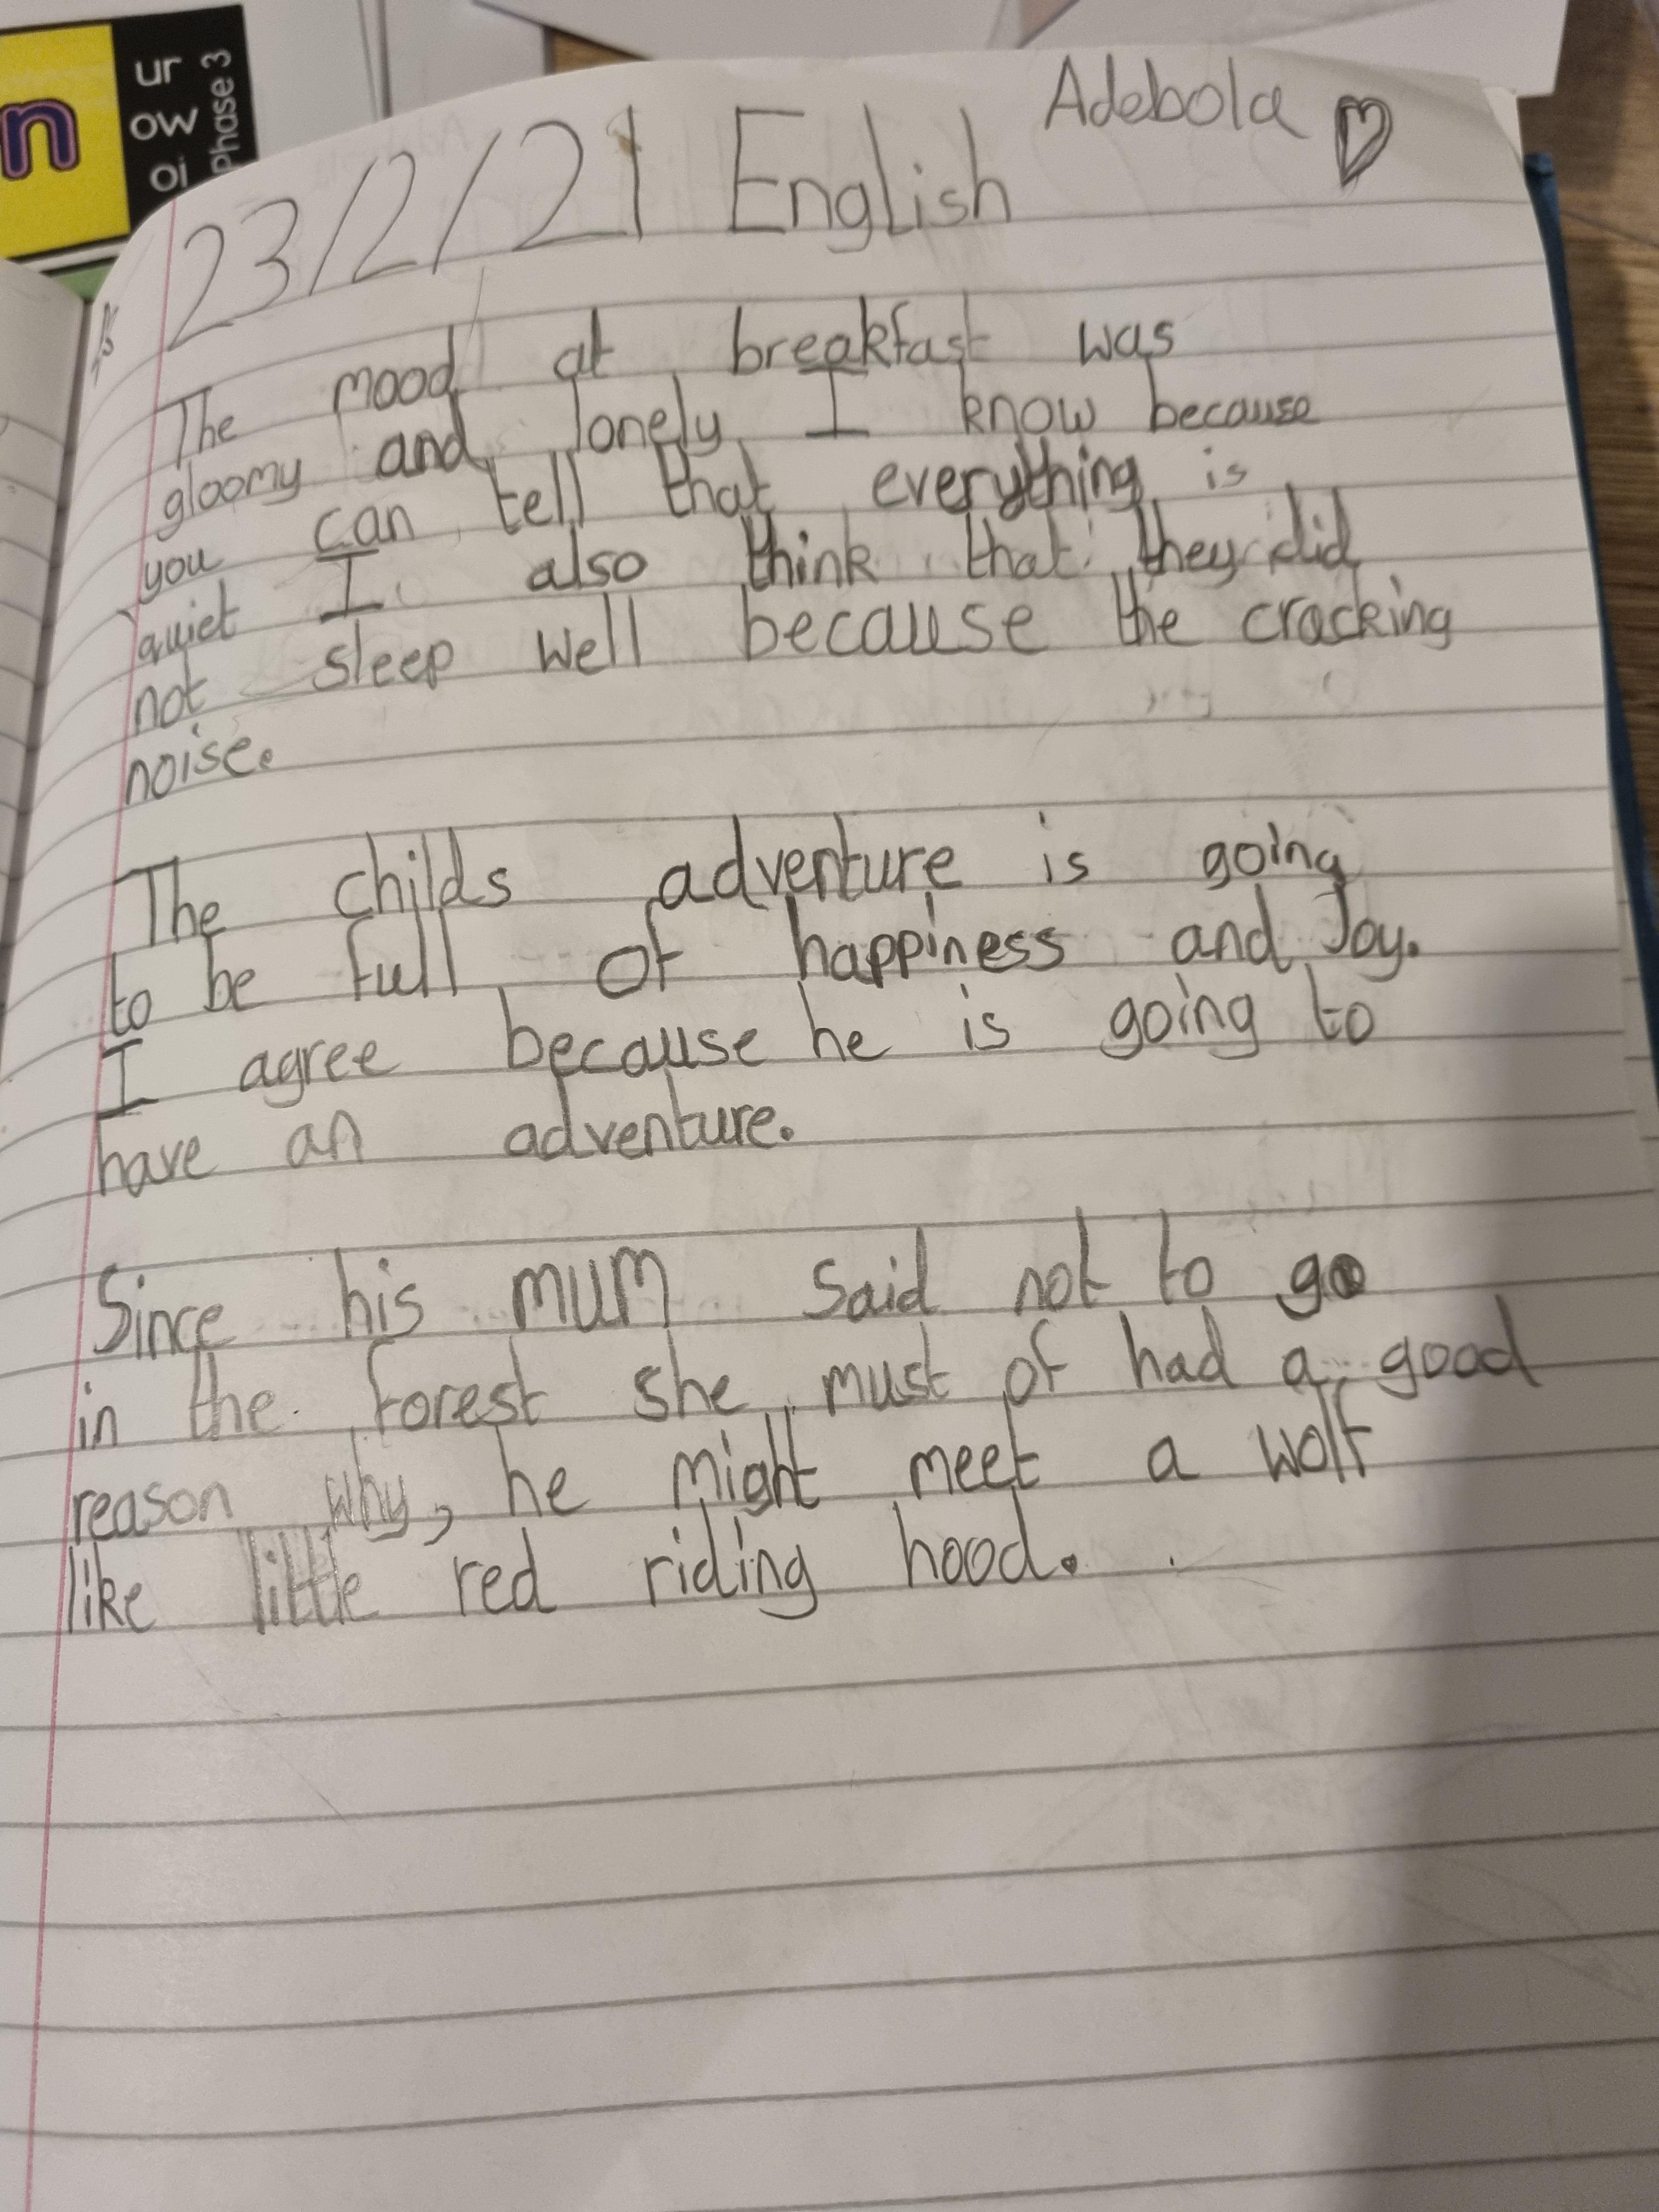 n
ur
ow
oi
Phase 3
Adebola
23/2/21 English
The mood at breakfast was
gloomy and lonely I know because
you can tell that everything is
quiet I also think that they did
not sleep well because the cracking
noise.
The childs adventure is going
to be full of happiness and Joy.
I agree because he is going to
have an adventure.
Since his mum said not to go
in the forest she must of had a good
reason why, he might meet a wolf
like little red riding hood.